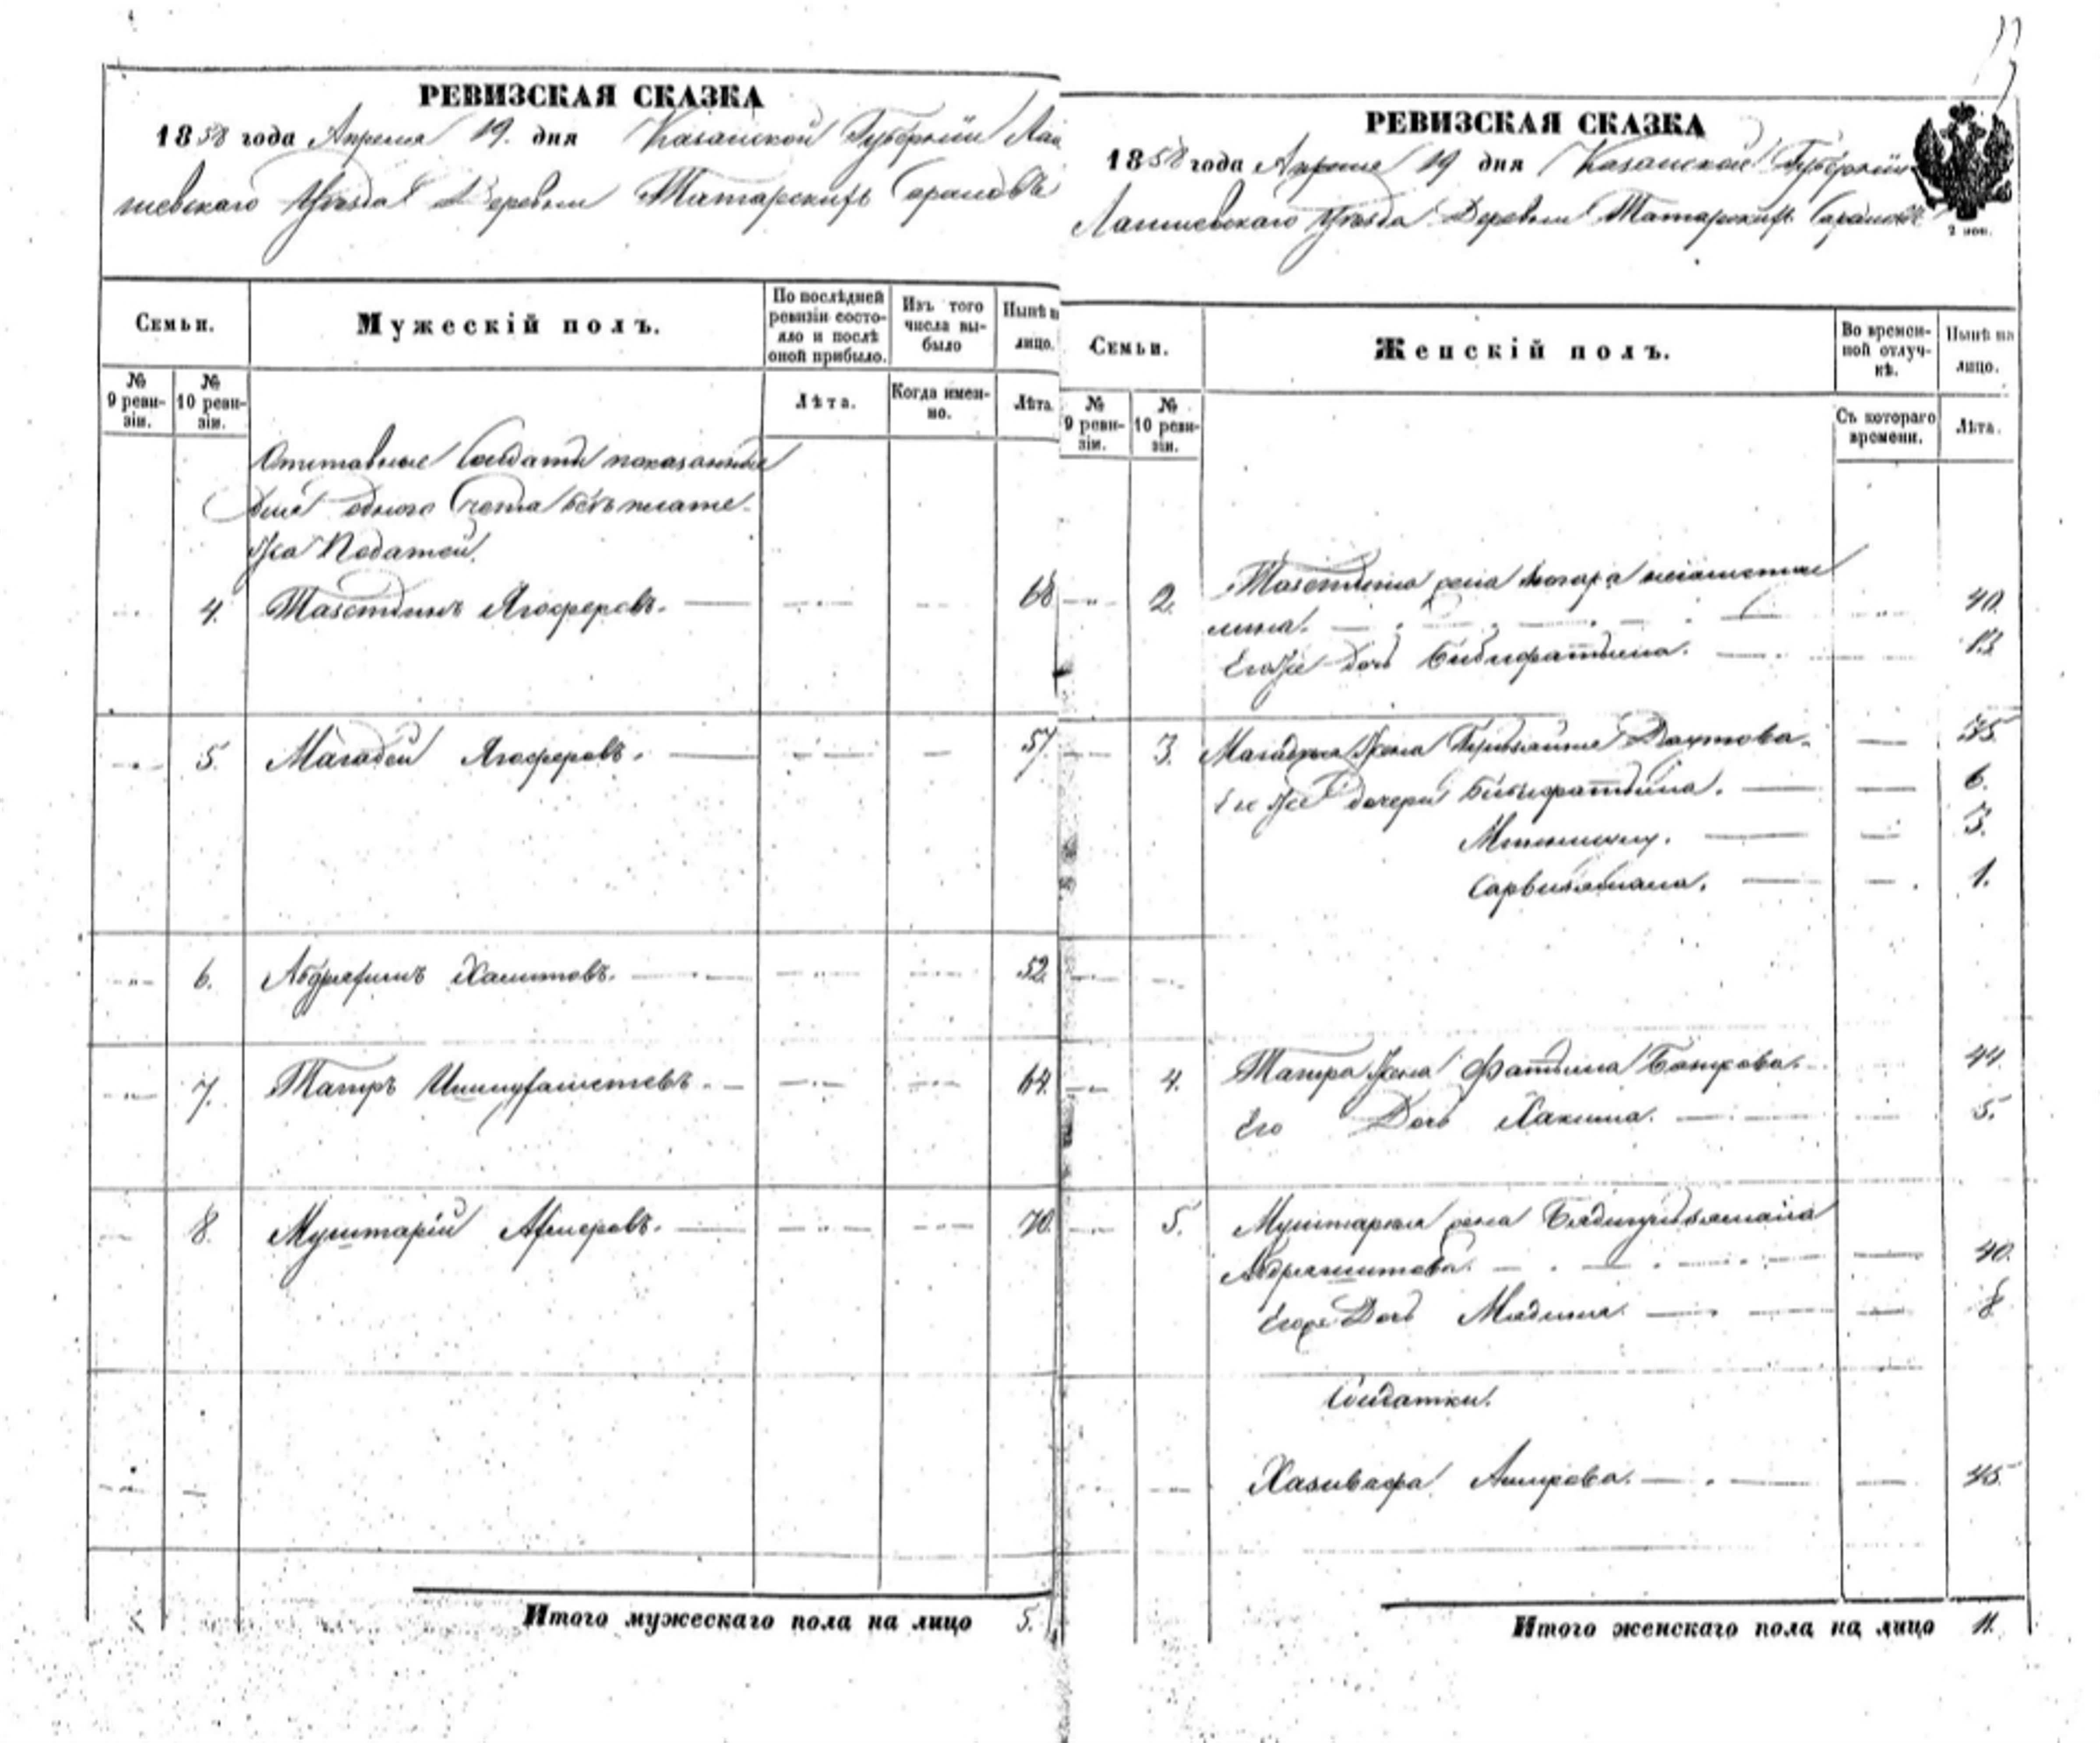 РЕВИЗСКАЯ СКАЗКА
1858 года Апреля 19. дня Казанской Губернiи Лаи
шевскаго Уѣзда Деревни Татарскихъ Сараловъ
Семьи.
Мужескiй полъ.
По послѣдней ревизiи состояло и послѣ оной прибыло.
Изъ того числа выбыло
Нынѣ на лицо.
№ 9 ревизiи.
№ 10 ревизiи.
Лѣта.
Когда именно.
Лѣта
Отставные Солдаты показанные
для одного счета безъ плате-
жа Податей.
4. Тазетдинъ Ягоферовъ. 68
5. Магадей Ягоферовъ. 57.
6. Абдряхимъ Халитовъ. 52.
7. Тагиръ 64.
8. Муштарiй Амеровъ. 70.
Итого мужескаго пола на лицо 5.
РЕВИЗСКАЯ СКАЗКА
1858 года Апреля 19 дня Казанской Губернiи
Лаишевскаго Уѣзда Деревни Татарскихъ Сараловъ
2 коп.
Семьи.
Женскiй полъ.
Во временной отлучкѣ.
Нынѣ на лицо.
№ 9 ревизiи.
№ 10 ревизiи.
Съ котораго времени.
Лѣта.
2. Тазетдина жена
40.
Егоже дочь Бибифатыма. 13
3. Магадея жена Даутова. 35
Его же дочери Бибифатыма. 6.
3.
1.
4. Тагира жена Фатыма Бакирова. 44.
Его Дочь Хакима. 5.
5. Муштарея жена Бядигулзямала
Абдряшитова. 40.
Егоже Дочь Мядина. 8
Солдатки.
Амирова. 45.
Итого женскаго пола на лицо 11.